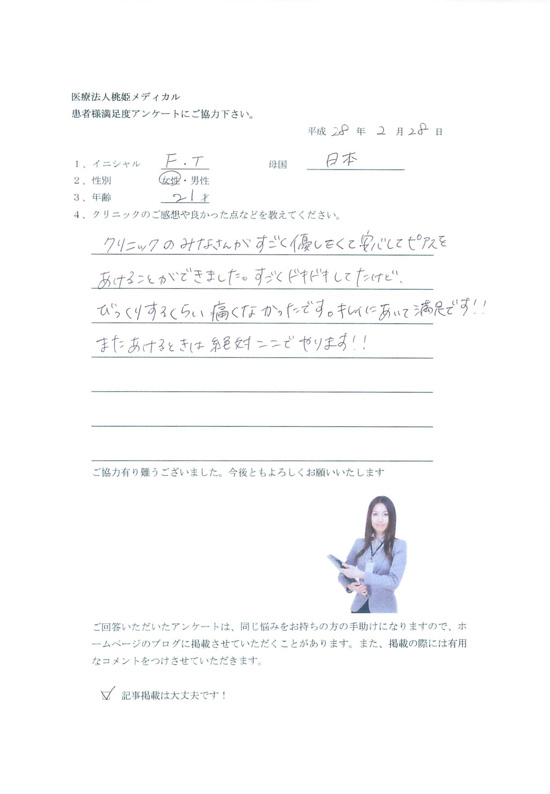 医療法人桃姫メディカル
患者様満足度アンケートにご協力下さい。
平成 28 年 2 月 28 日
1、イニシャル F.T 母国 日本
2、性別 女性・男性
3、年齢 21才
4、クリニックのご感想や良かった点などを教えてください。
クリニックのみなさんがすごく優しくて安心してピアスを
あけることができました。すごくドキドキしてたけど、
びっくりするくらい痛くなかったです。キレイにあいて満足です!!
またあけるときは絶対ここでやります!!
ご協力有り難うございました。今後ともよろしくお願いいたします
ご回答いただいたアンケートは、同じ悩みをお持ちの方の手助けになりますので、ホ
ームページのブログに掲載させていただくことがあります。また、掲載の際には有用
なコメントをつけさせていただきます。
☑ 記事掲載は大丈夫です！